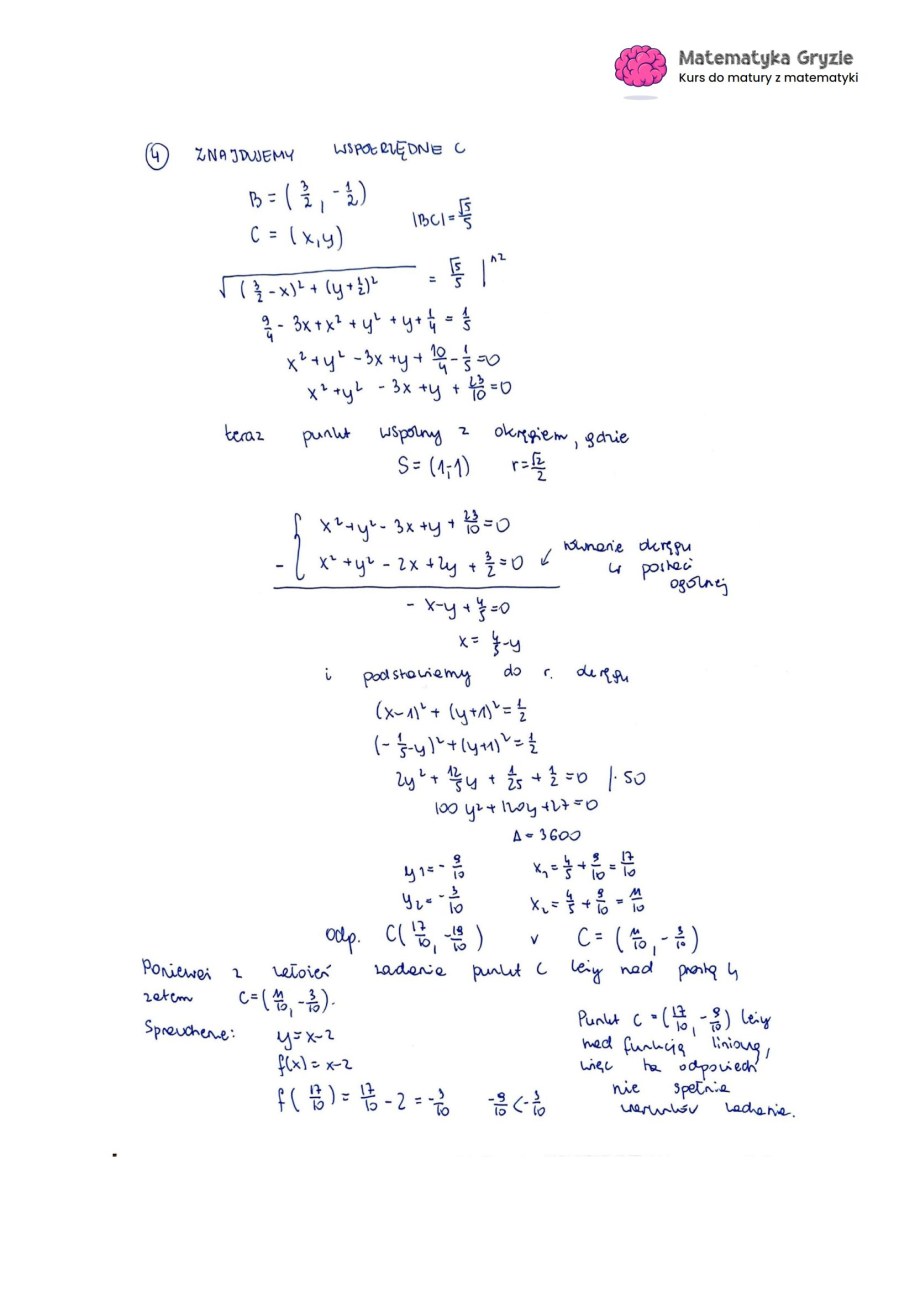 Matematyka Gryzie
Kurs do matury z matematyki
④ ZNAJDUJEMY WSPÓŁRZĘDNE C
B = (3/2, -1/2)
C = (x,y)
|BC| = √5/5
√((3/2 - x)² + (y+1/2)²) = √5/5 |^2
9/4 - 3x + x² + y² + y + 1/4 = 1/5
x² + y² - 3x + y + 10/4 - 1/5 = 0
x² + y² - 3x + y + 23/10 = 0
teraz punkt wspólny z okręgiem, gdzie
S = (1,-1) r = √2/2
x² + y² - 3x + y + 23/10 = 0
- { x² + y² - 2x + 2y + 3/2 = 0 ↙ równanie okręgu
w postaci
ogólnej
- x - y + 4/5 = 0
x = 4/5 - y
i podstawiamy do r. okręgu
(x-1)² + (y+1)² = 1/2
(-1/5 - y)² + (y+1)² = 1/2
2y² + 12/5 y + 1/25 + 1/2 = 0 | · 50
100 y² + 120y + 27 = 0
Δ = 3600
y1 = - 9/10 x₁ = 4/5 + 9/10 = 17/10
y2 = - 3/10 x₂ = 4/5 + 9/10 = 11/10
odp. C(17/10, -19/10) v C = (11/10, -3/10)
Ponieważ z założeń zadania punkt C leży nad prostą
zatem C = (11/10, -3/10).
Sprawdzenie: y = x-2
f(x) = x-2
f(17/10) = 17/10 - 2 = -3/10 -9/10 < -3/10
Punkt C = (17/10, -9/10) leży
nad funkcją liniową,
więc ta odpowiedź
nie spełnia
warunków zadania.